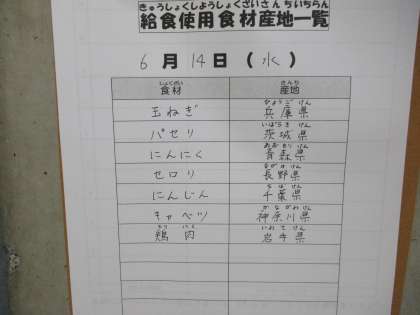 きゅうしょくしようしょくざいさんちいちらん
給食使用食材産地一覧
6月14日（水）
しょくざい さんち
食材 産地
ひょうご けん
玉ねぎ 兵庫県
いばらき けん
パセリ 茨城県
あおもり けん
にんにく 青森県
ながの けん
セロリ 長野県
ちば けん
にんじん 千葉県
かながわ けん
キャベツ 神奈川県
とり にく いわて けん
鶏肉 岩手県